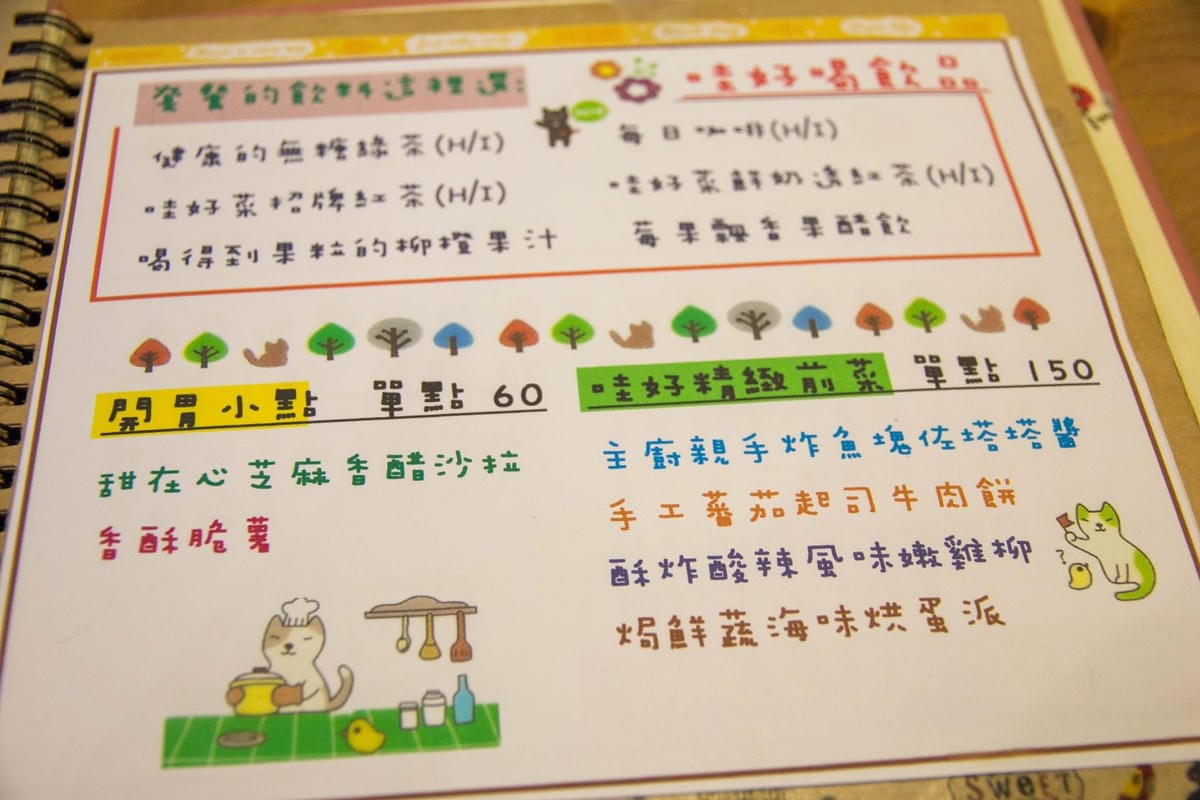 套餐的飲料這裡選:
健康的無糖綠茶(H/I)
哇好菜招牌紅茶(H/I)
喝得到果粒的柳橙果汁
哇好喝飲品
每日咖啡(H/I)
哇好菜鮮奶遇紅茶(H/I)
莓果飄香果醋飲
開胃小點 單點 60
甜在心芝麻香醋沙拉
香酥脆薯
哇好精緻前菜 單點 150
主廚親手炸魚塊佐塔塔醬
手工蕃茄起司牛肉餅
酥炸酸辣風味嫩雞柳
焗鮮蔬海味烘蛋派
SWEET